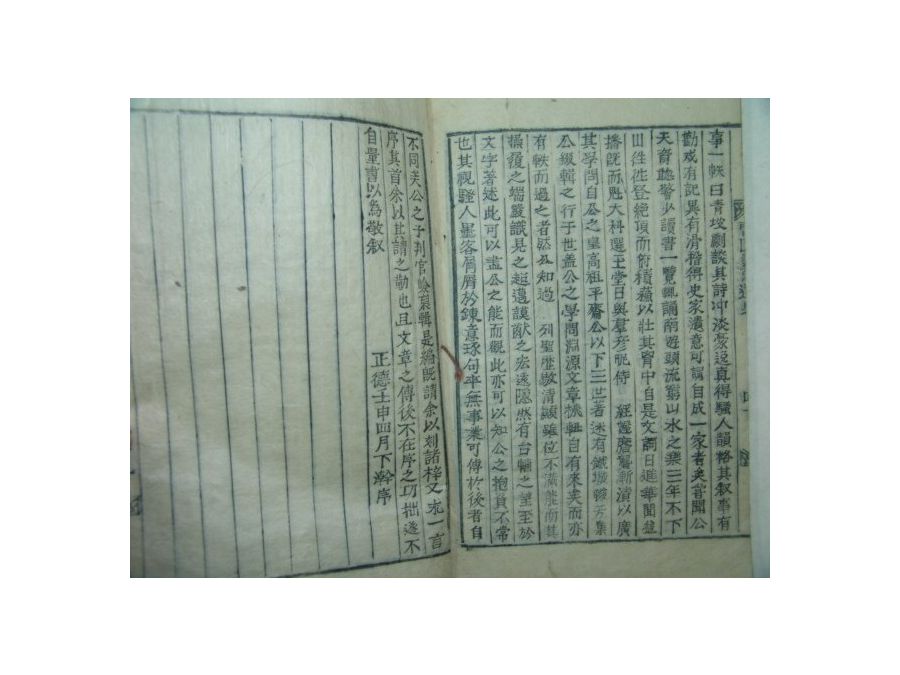 事一帙曰青坡劇談其詩冲淡豪逸真得騷人韻格其叙事有
勸戒有記異有滑稽得史家遺意可謂自成一家者矣嘗聞公
天資聰警少讀書一覽輒誦南遊頭流窮山水之樂三年不下
山往往登絶頂而俯積蘊以壯其胷中自是文詞日進華聞益
播旣而魁大科選玉堂日與羣彦昵侍 經幄磨礱漸漬以廣
其學問自公之皇高祖平齋公以下三世著述有鐵城聯芳集
公緝之行于世盖公之學問淵源文章機軸自有來矣而亦
有軼而過之者然公知過 列聖歷敭清顯雖位不滿能而其
操履之端嚴識見之超邁謨猷之宏遠隱然有台輔之望至於
文字著述此可以盡公之能而觀此亦可以知公之抱負不常
也其視騷人墨客屑屑於鍊意琢句卒無事業可傳於後者自
不同矣公之子判官嶮裒輯是編旣請余以刻諸梓又求一言
序其首余以其請之勤也且文章之傳後不在序之巧拙遂不
自量書以為敬叙
正德壬申四月下澣序